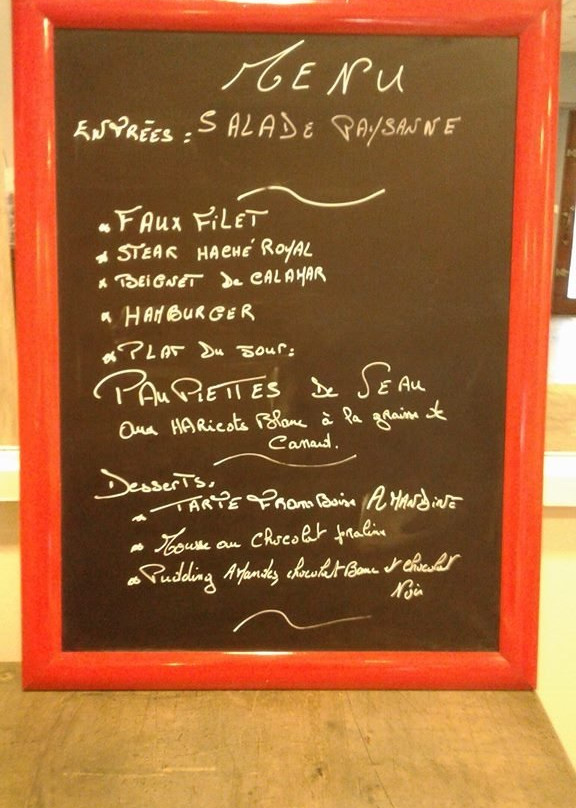 MENU
ENTRÉES : SALADE PAYSANNE
* FAUX FiLET
* STEAK HACHÉ ROYAL
* BEIGNET De CALAMAR
* HAMBURGER
* PLAT Du JOUR:
PAUPIETTES De VEAU
aux HARicots Blanc à la graine de
Canard.
Desserts.
* TARTE FramBoise AMANDINE
* Mousse au chocolat praline
* Pudding AMandes chocolat Blanc et chocolat
Noir